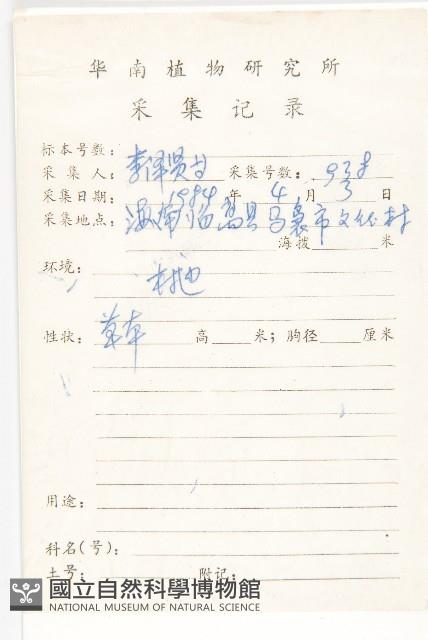 华南植物研究所
采集记录
标本号数：
采集人：李泽贤 采集号数：938
采集日期：1994年4月3日
采集地点：海南临高县马袅市文 村
海拔 米
环境：
林地
性状：草本 高 米；胸径 厘米
用途：
科名(号)：
土号： 附记：
國立自然科學博物館
NATIONAL MUSEUM OF NATURAL SCIENCE